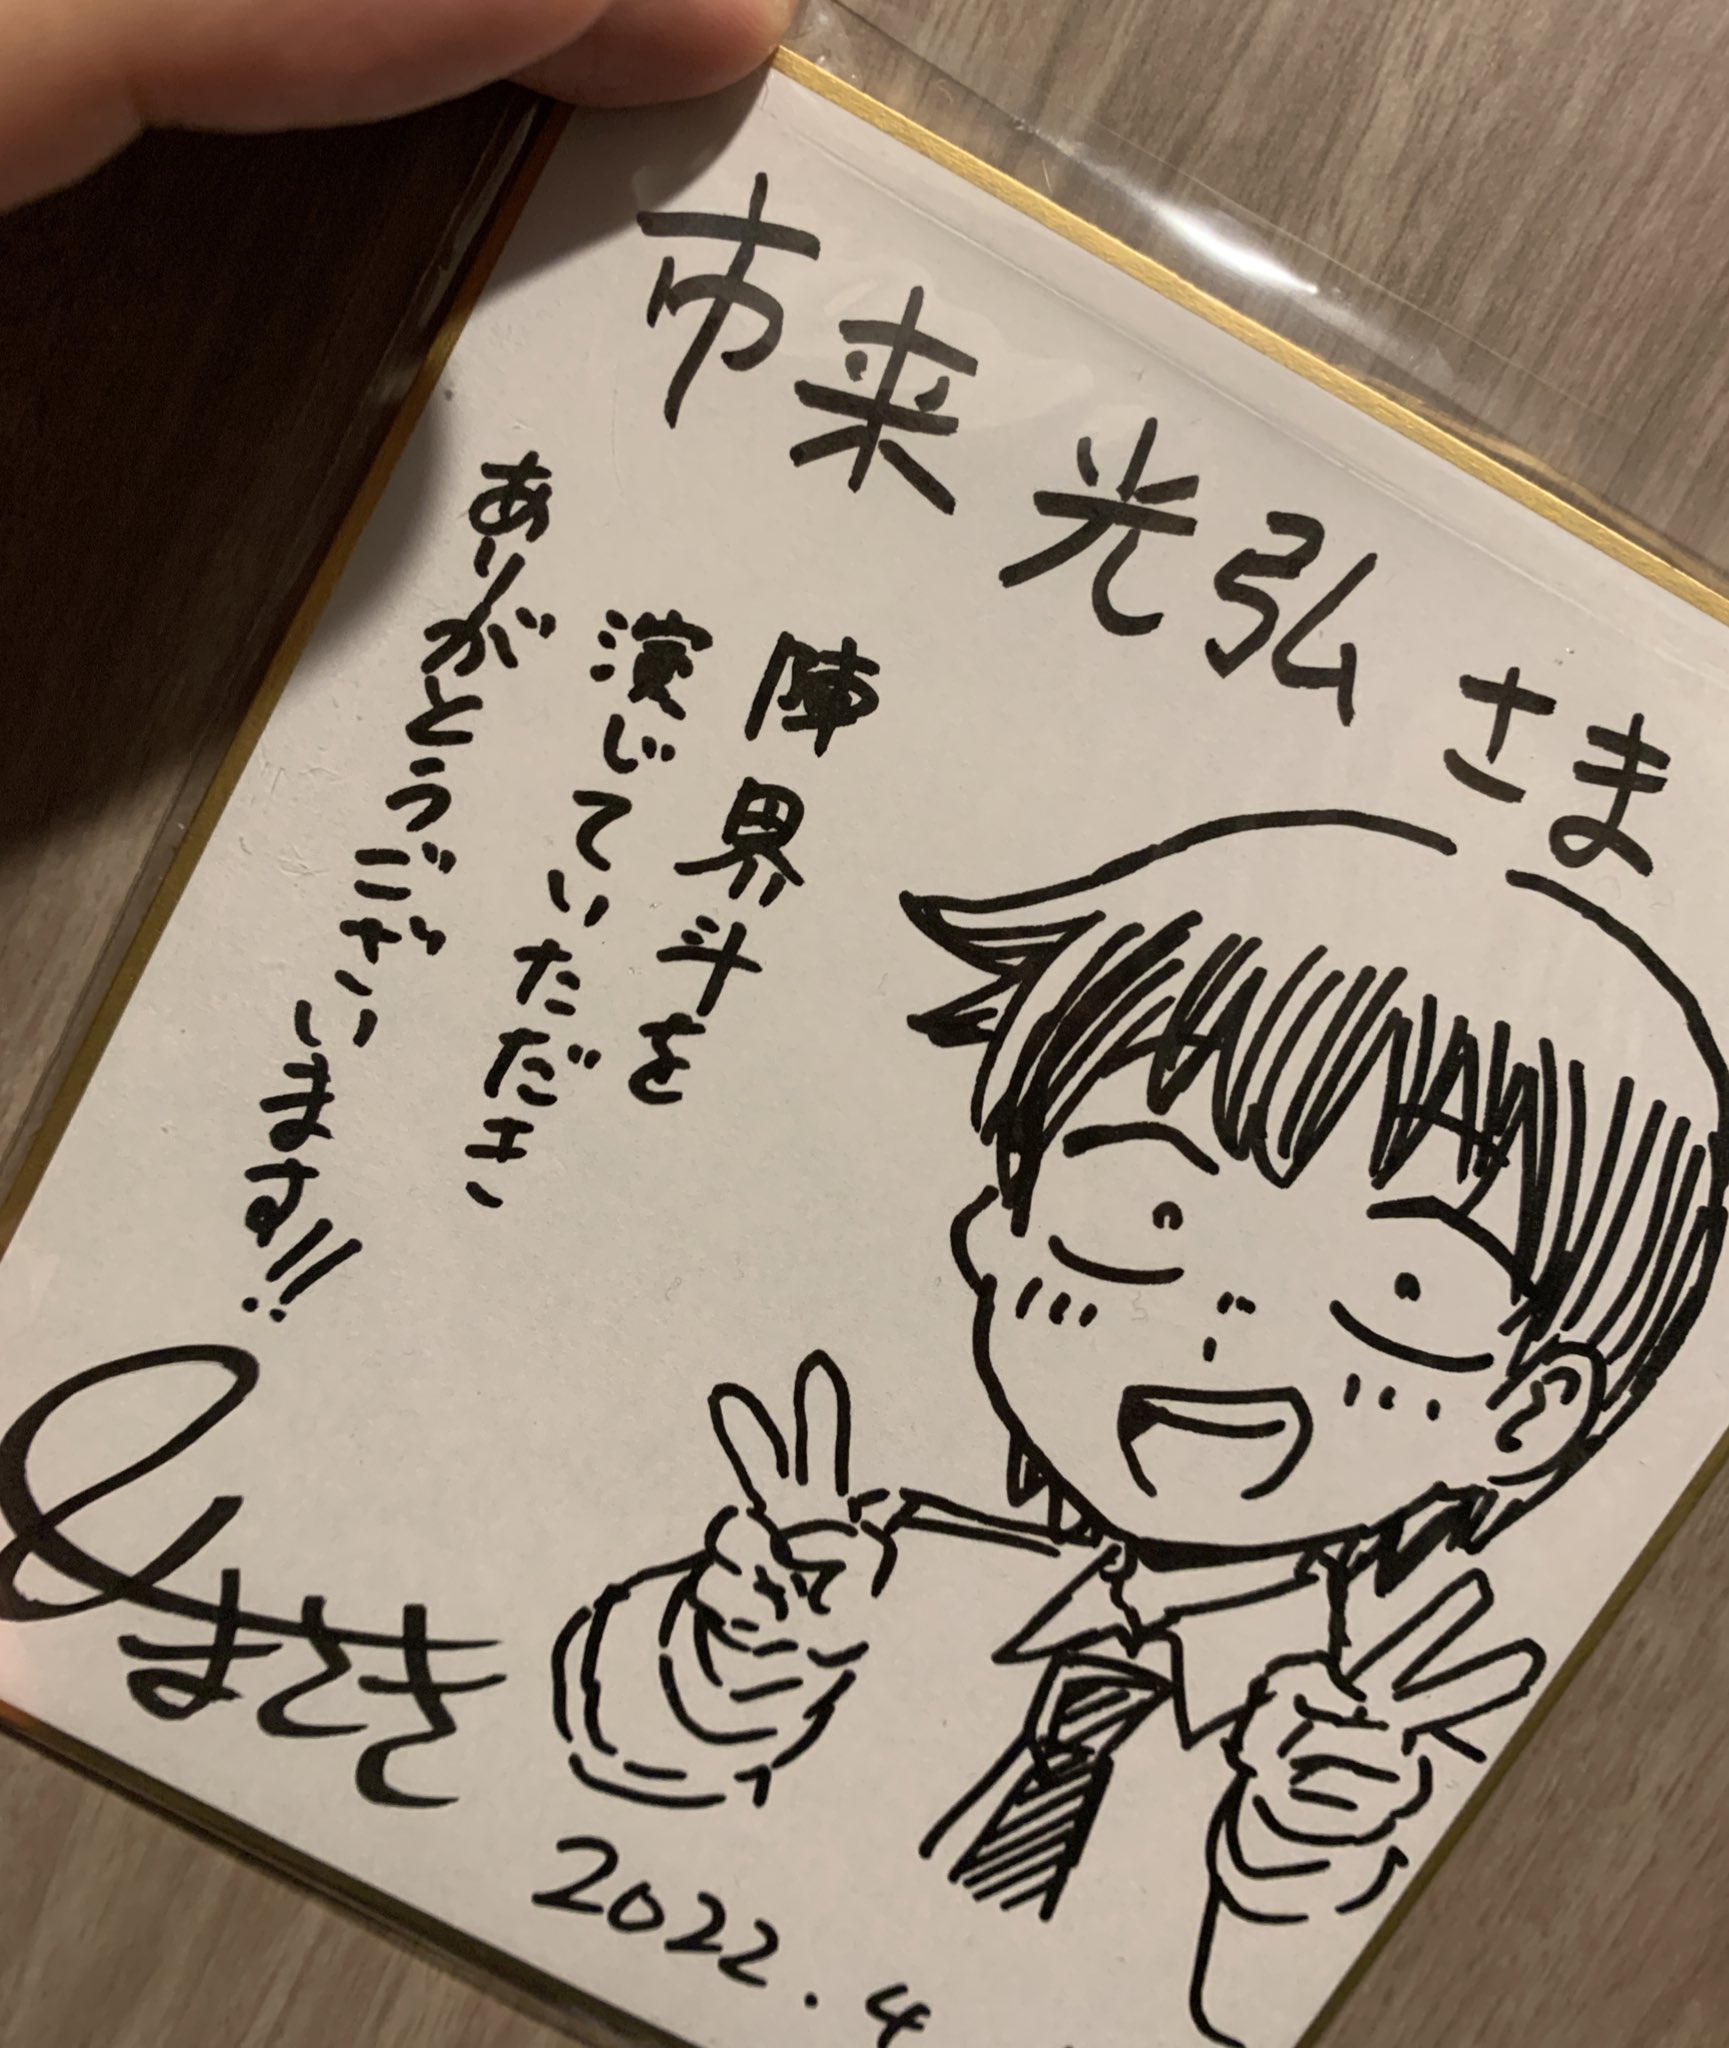 市来 光弘 さま
陣 界斗を
演じていただき
ありがとうございます!!
2022.4